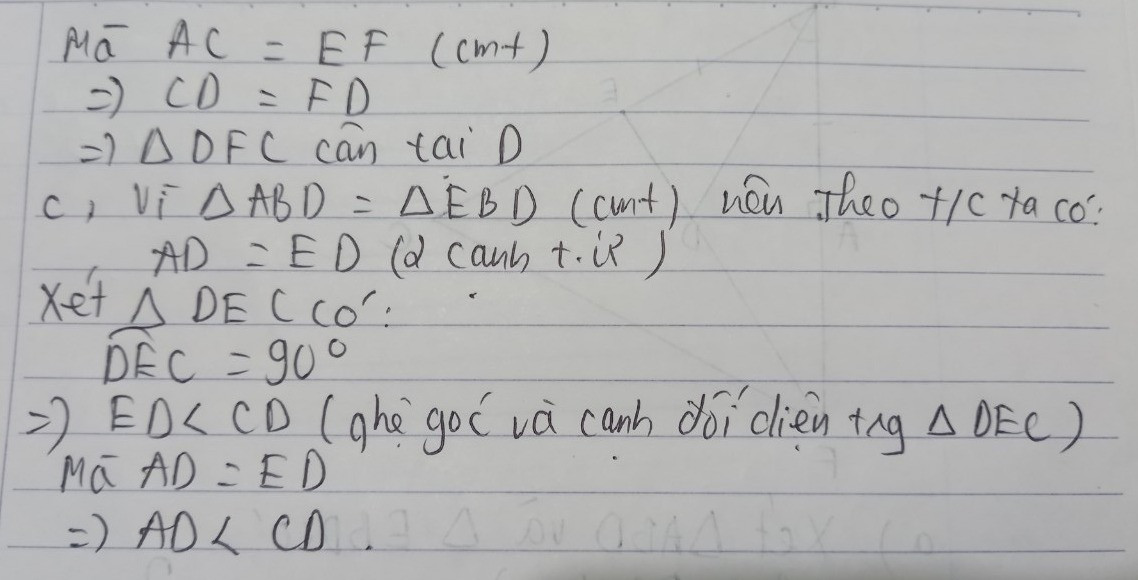 Mà AC = EF (cmt)
=) CD = FD
=) Δ DFC cân tại D
c, Vì Δ ABD = Δ EBD (cmt) nên Theo t/c ta có:
AD = ED (2 cạnh t.ư)
Xét Δ DEC có:
DÊC = 90°
=) ED < CD (qhệ góc và cạnh đối diện trg Δ DEC)
Mà AD = ED
=) AD < CD .